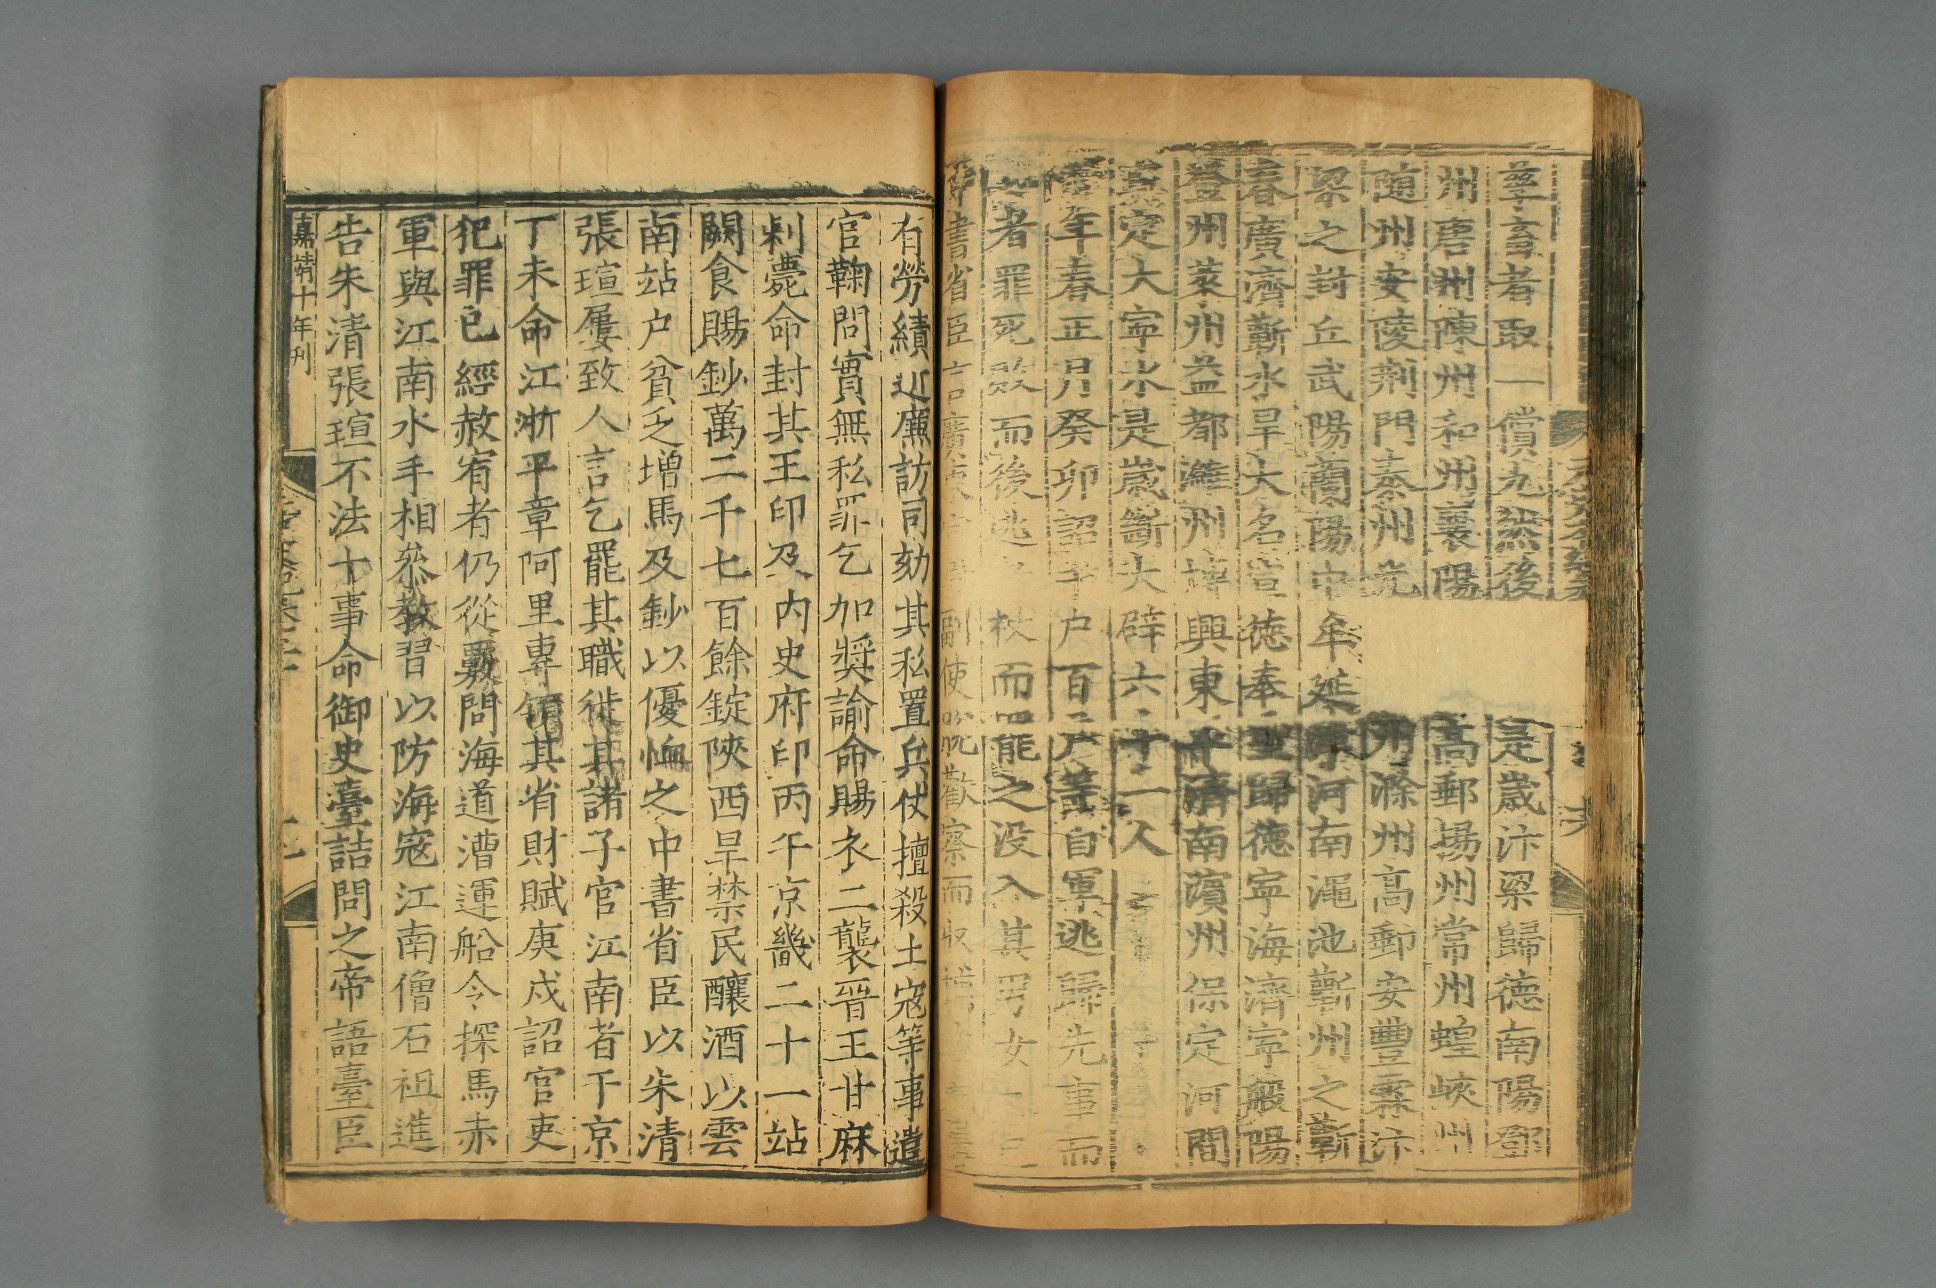 孳畜者取一償九然後　是歲汴梁歸德南陽鄧
州唐州陳州和州襄陽　高郵揚州常州蝗峽州
随州安陵荆門泰州光　州滁州高郵安豐霖汴
梁之封丘武陽蘭陽中牟延津河南澠池蘄州之蘄
春廣濟蘄水旱大名宣德奉聖歸德寧海濟寧般陽
登州萊州益都濰州博興東平濟南濱州保定河間
真定大寧水是歲斷大辟六十二人
年春正月癸卯詔千户百户等自軍逃歸先事而
者罪死敗而後逃杖而罷之没入其男女
書省臣言廣東副使脱歡察而收
有勞績近廉訪司劾其私置兵仗擅殺土寇等事遣
官鞠問實無私罪乞加奬諭命賜衣二襲晉王甘麻
剌薨命封其王印及内史府印丙午京畿二十一站
闕食賜鈔萬二千七百餘錠陝西旱禁民釀酒以雲
南站户貧乏增馬及鈔以優恤之中書省臣以朱清
張瑄屢致人言乞罷其職徙其諸子官江南者于京
丁未命江浙平章阿里專領其省財賦庚戌詔官吏
犯罪已經赦宥者仍從覈問海道漕運船令探馬赤
軍與江南水手相叅教習以防海寇江南僧石祖進
告朱清張瑄不法十事命御史臺詰問之帝語臺臣
嘉靖十年刊